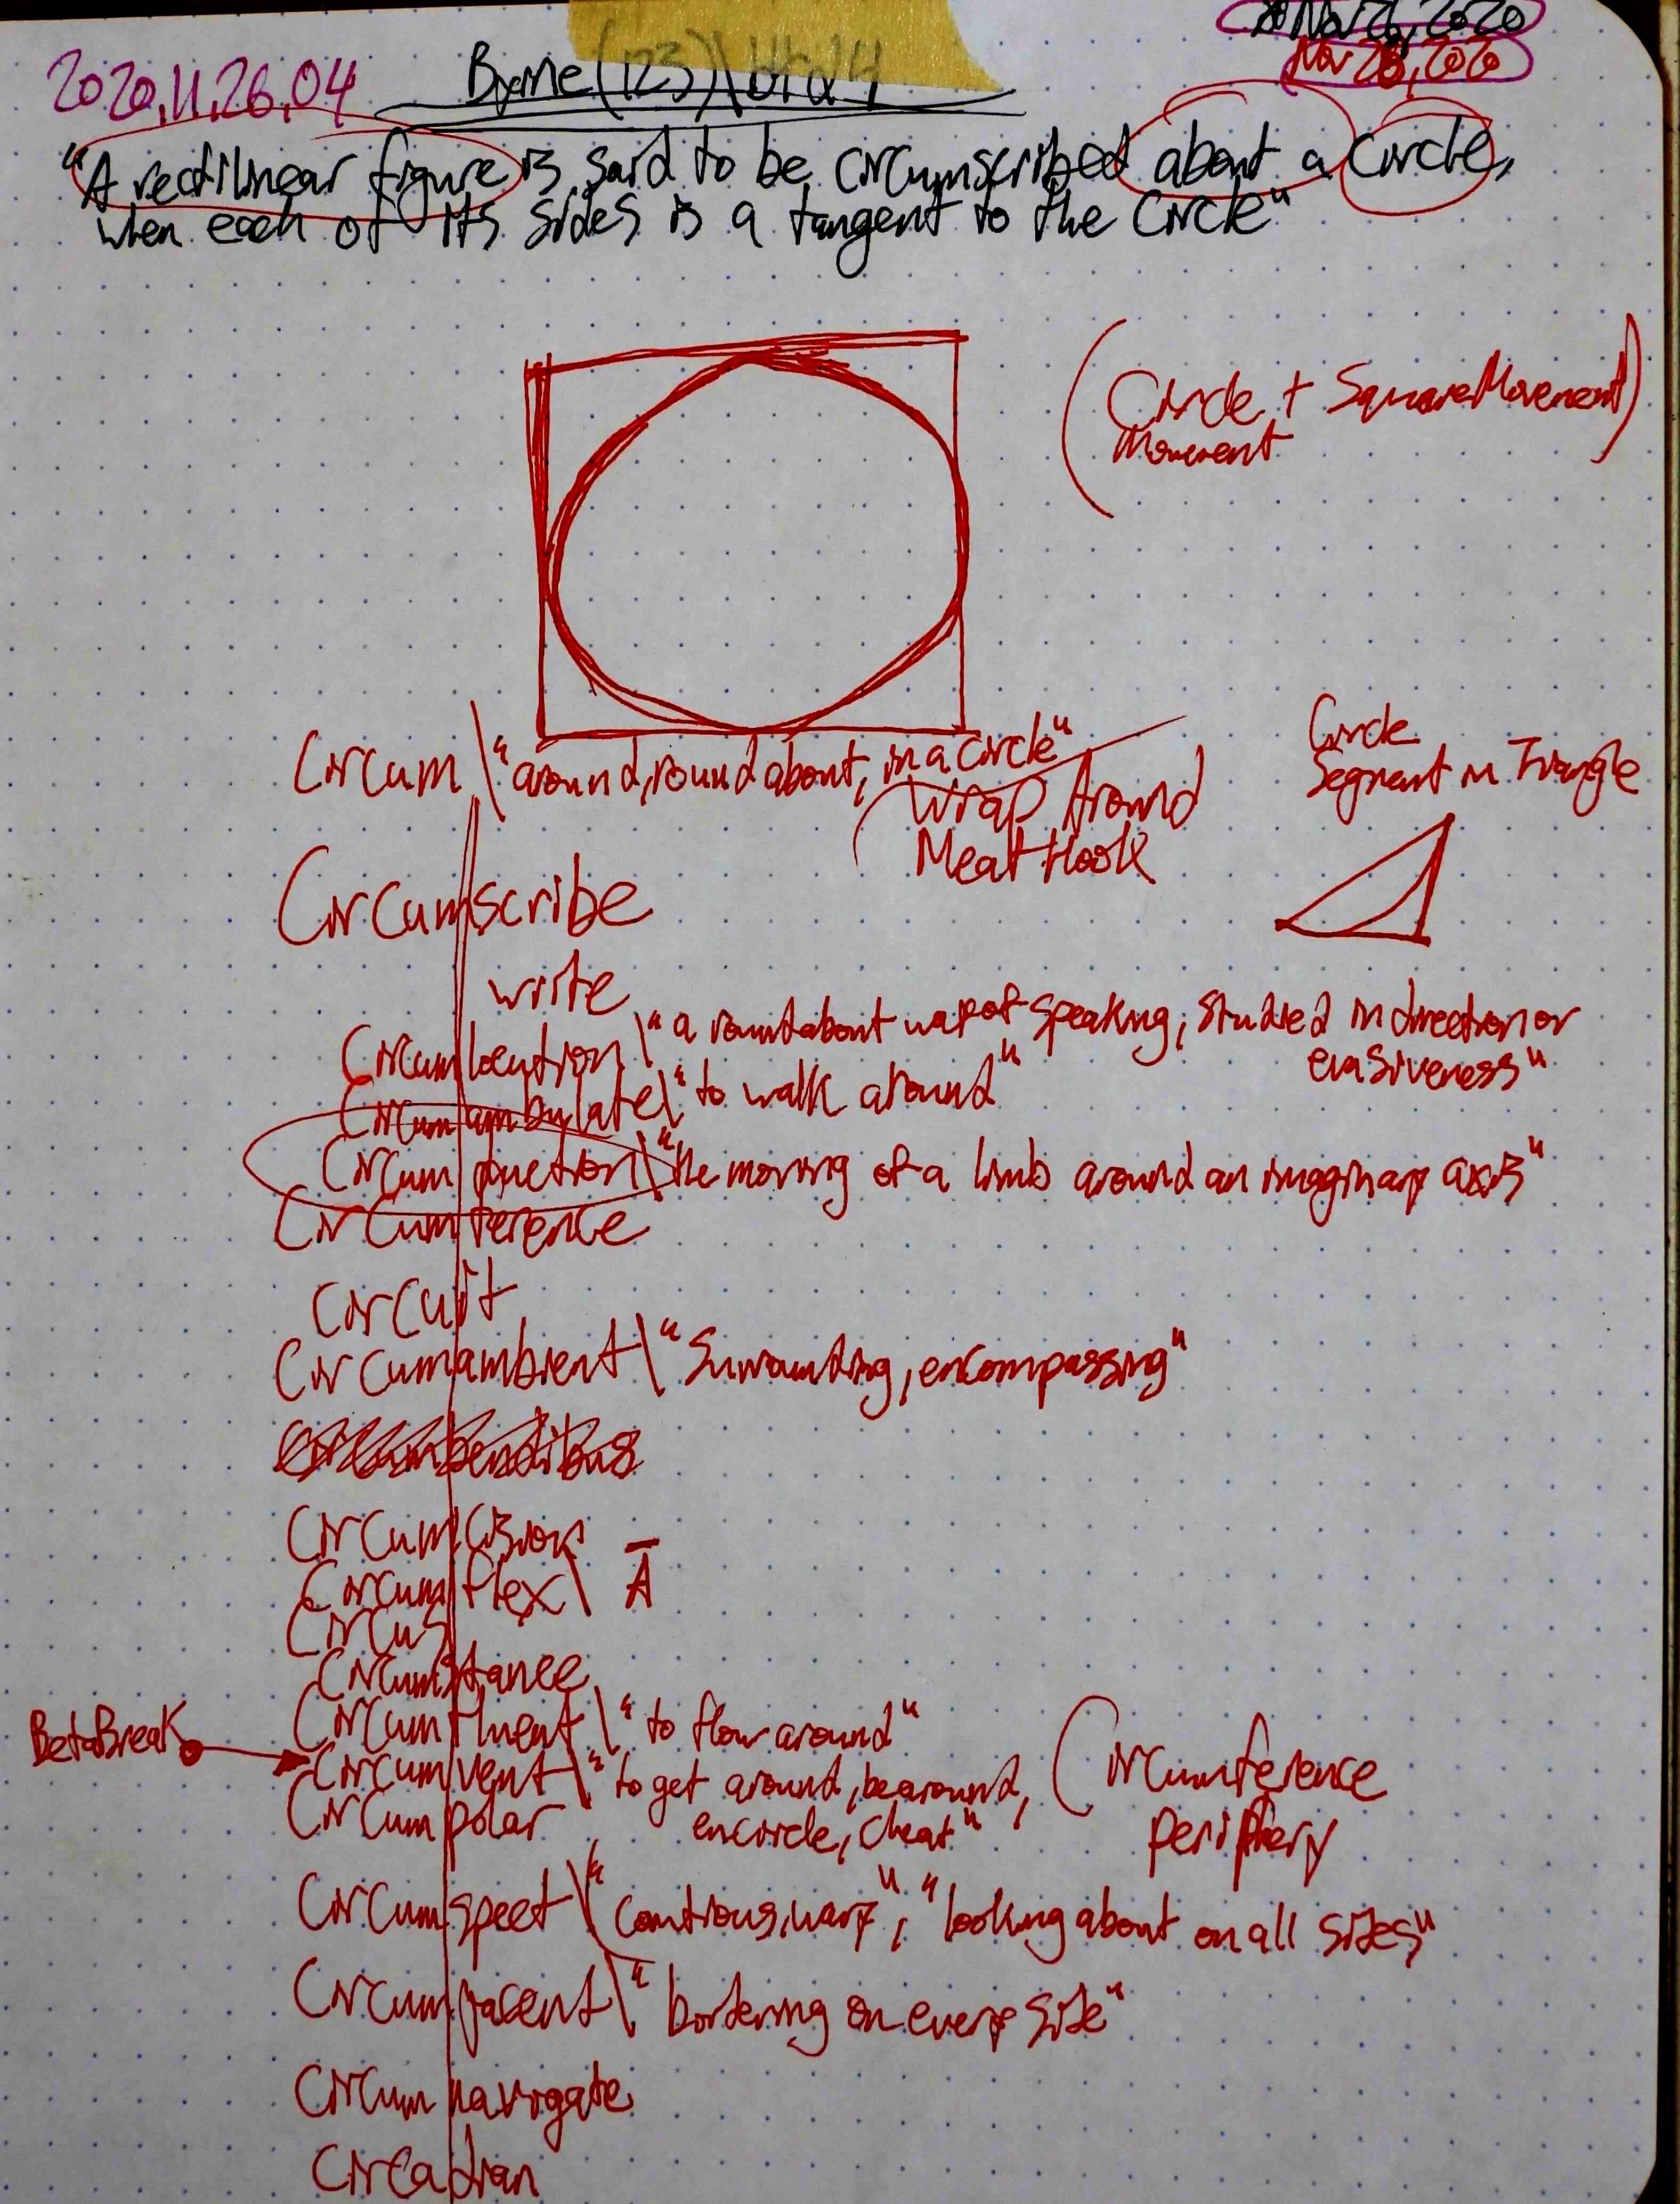 2020.11.26.04
Byrne (123) \
Nov 26, 2020
Nov 26, 2020
"A rectilinear figure is said to be circumscribed about a circle,
when each of its sides is a tangent to the circle"
(Circle + Square Movement)
Movement
Circum \ "around, round about, in a circle"
Wrap Around
Meat Hook
Circle
Segment in Triangle
Circumscribe
write
Circumlocution \ "a roundabout way of speaking; studied indirection or
evasiveness"
Circumambulate \ "to walk around"
Circumduction \ "the moving of a limb around an imaginary axis"
Circumference
Circuit
Circumambient \ "Surrounding, encompassing"
Circumbendibus
Circumcision
Circumflex \ Ā
Circus
Circumstance
Circumfluent \ "to flow around"
BetaBreak
Circumvent \ "to get around, be around,
encircle, cheat"
Circumpolar
(Circumference
periphery
Circumspect \ "cautious, wary", "looking about on all sides"
Circumjacent \ "bordering on every side"
Circumnavigate
Circadian